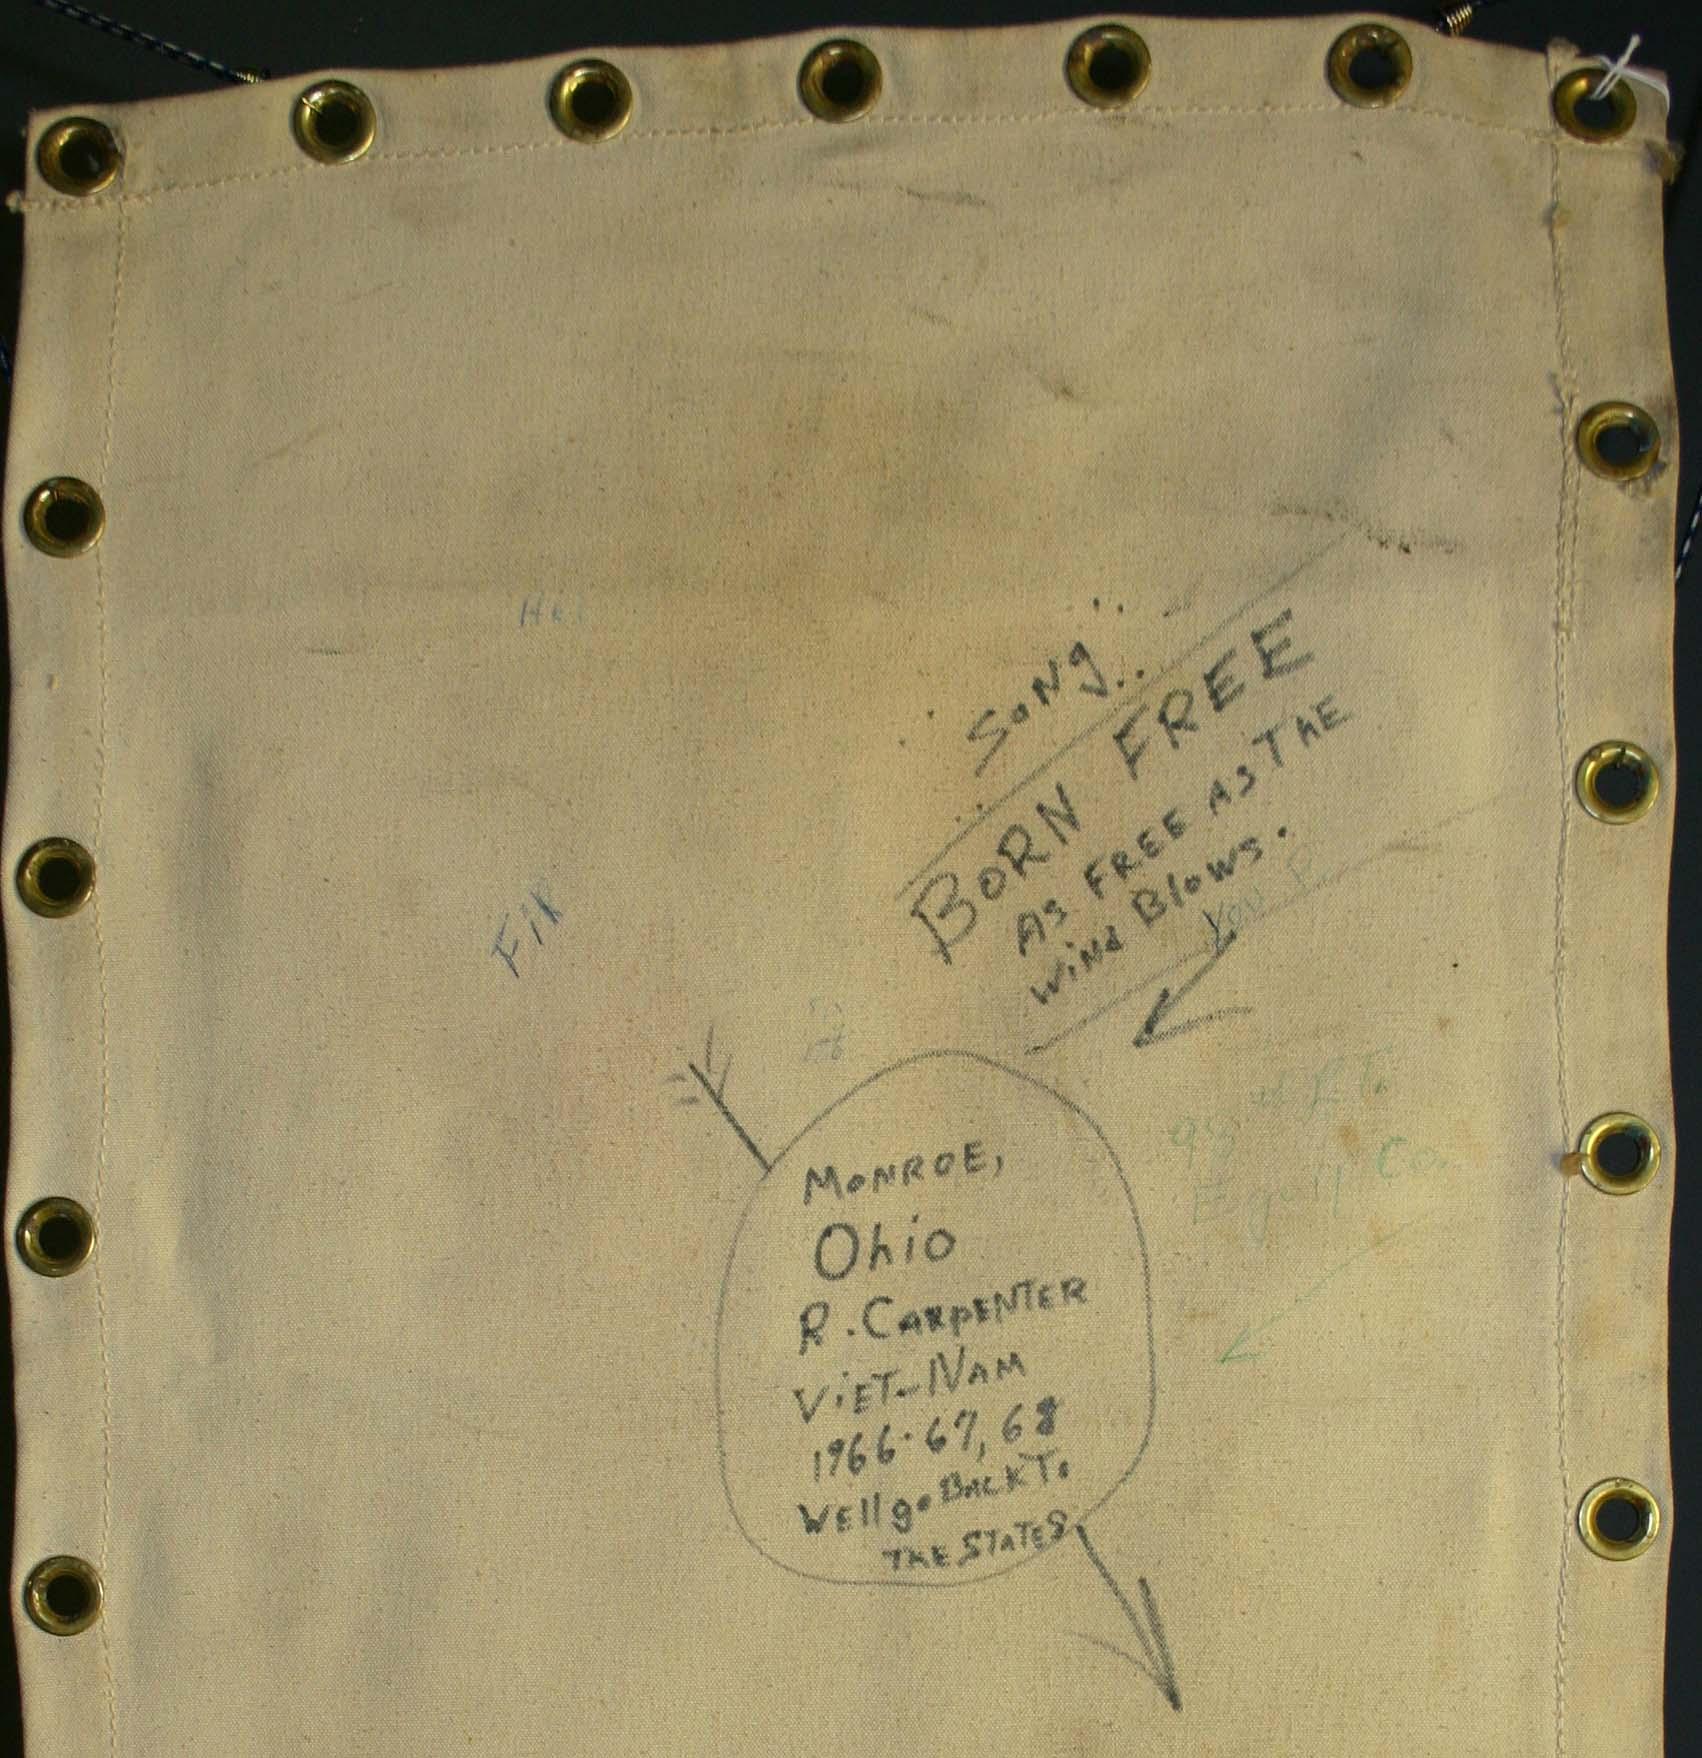 Song
BORN FREE
As FREE As ThE
WiNd Blows.
You
MoNROE,
Ohio
R. CARpENTER
ViET-NAM
1966-67, 68
WEll go BACK To
THE STATES
Co.